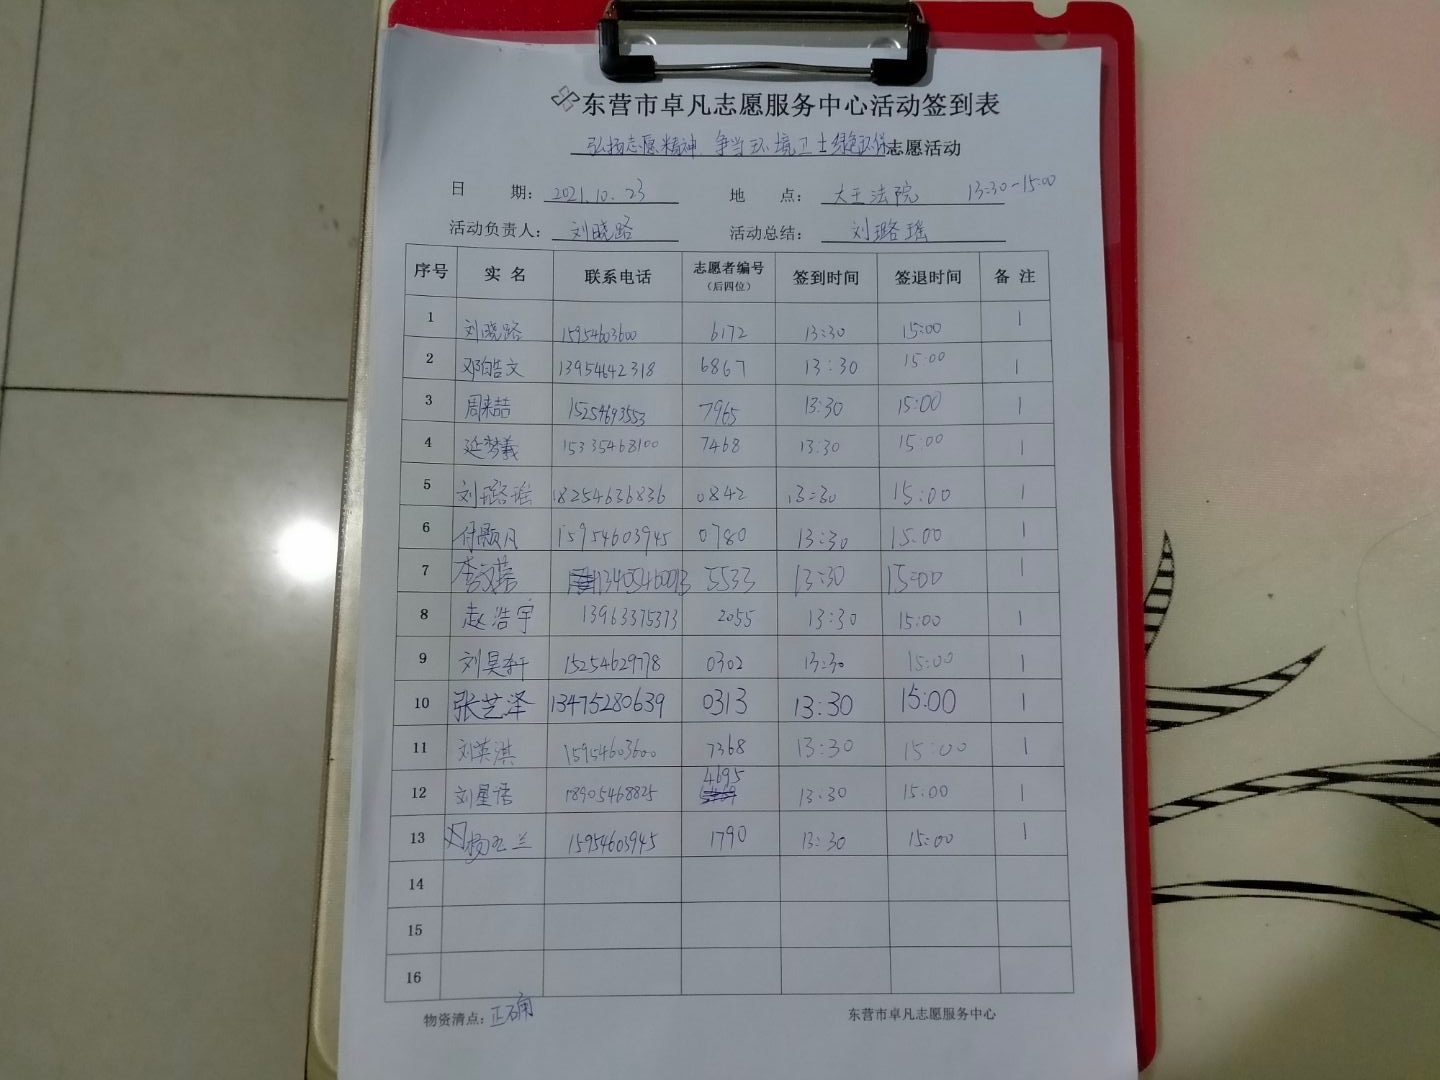 东营市卓凡志愿服务中心活动签到表
弘扬志愿精神 争当环境卫士绿色环保志愿活动
日 期: 2021.10.23 地 点: 大王法院 13:30-15:00
活动负责人: 刘晓路 活动总结: 刘璐瑶
序号 实 名 联系电话 志愿者编号 (后四位) 签到时间 签退时间 备 注
1 刘晓路 15954603600 6172 13:30 15:00 1
2 邓皓文 13954642318 6867 13:30 15:00 1
3 周来喆 15254693553 7965 13:30 15:00 1
4 延梦羲 15335468100 7468 13:30 15:00 1
5 刘璐瑶 18254636836 0842 13:30 15:00 1
6 付颢凡 15954603945 0780 13:30 15:00 1
7 李文蓉 13405460013 5533 13:30 15:00 1
8 赵浩宇 13963375373 2055 13:30 15:00 1
9 刘昊轩 15254629778 0302 13:30 15:00 1
10 张艺泽 13475280639 0313 13:30 15:00 1
11 刘英淇 15954603600 7368 13:30 15:00 1
12 刘星语 18905468825 4695 13:30 15:00 1
13 杨玉兰 15954603945 1790 13:30 15:00 1
14
15
16
物资清点: 正确 东营市卓凡志愿服务中心